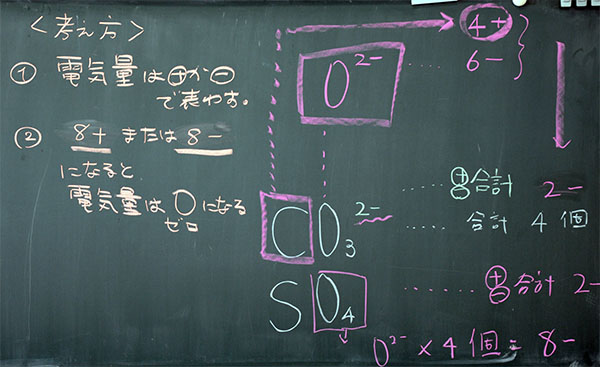 <考え方>
① 電気量は⊕か⊖
で表わす。
② 8+ または 8−
になると
電気量は 0 になる
ゼロ
4+
O²⁻ …… 6−
CO₃²⁻ …… ⊕⊖合計 2−
…… 合計 4個
SO₄ …… ⊕⊖合計 2−
O²⁻ × 4個 = 8−